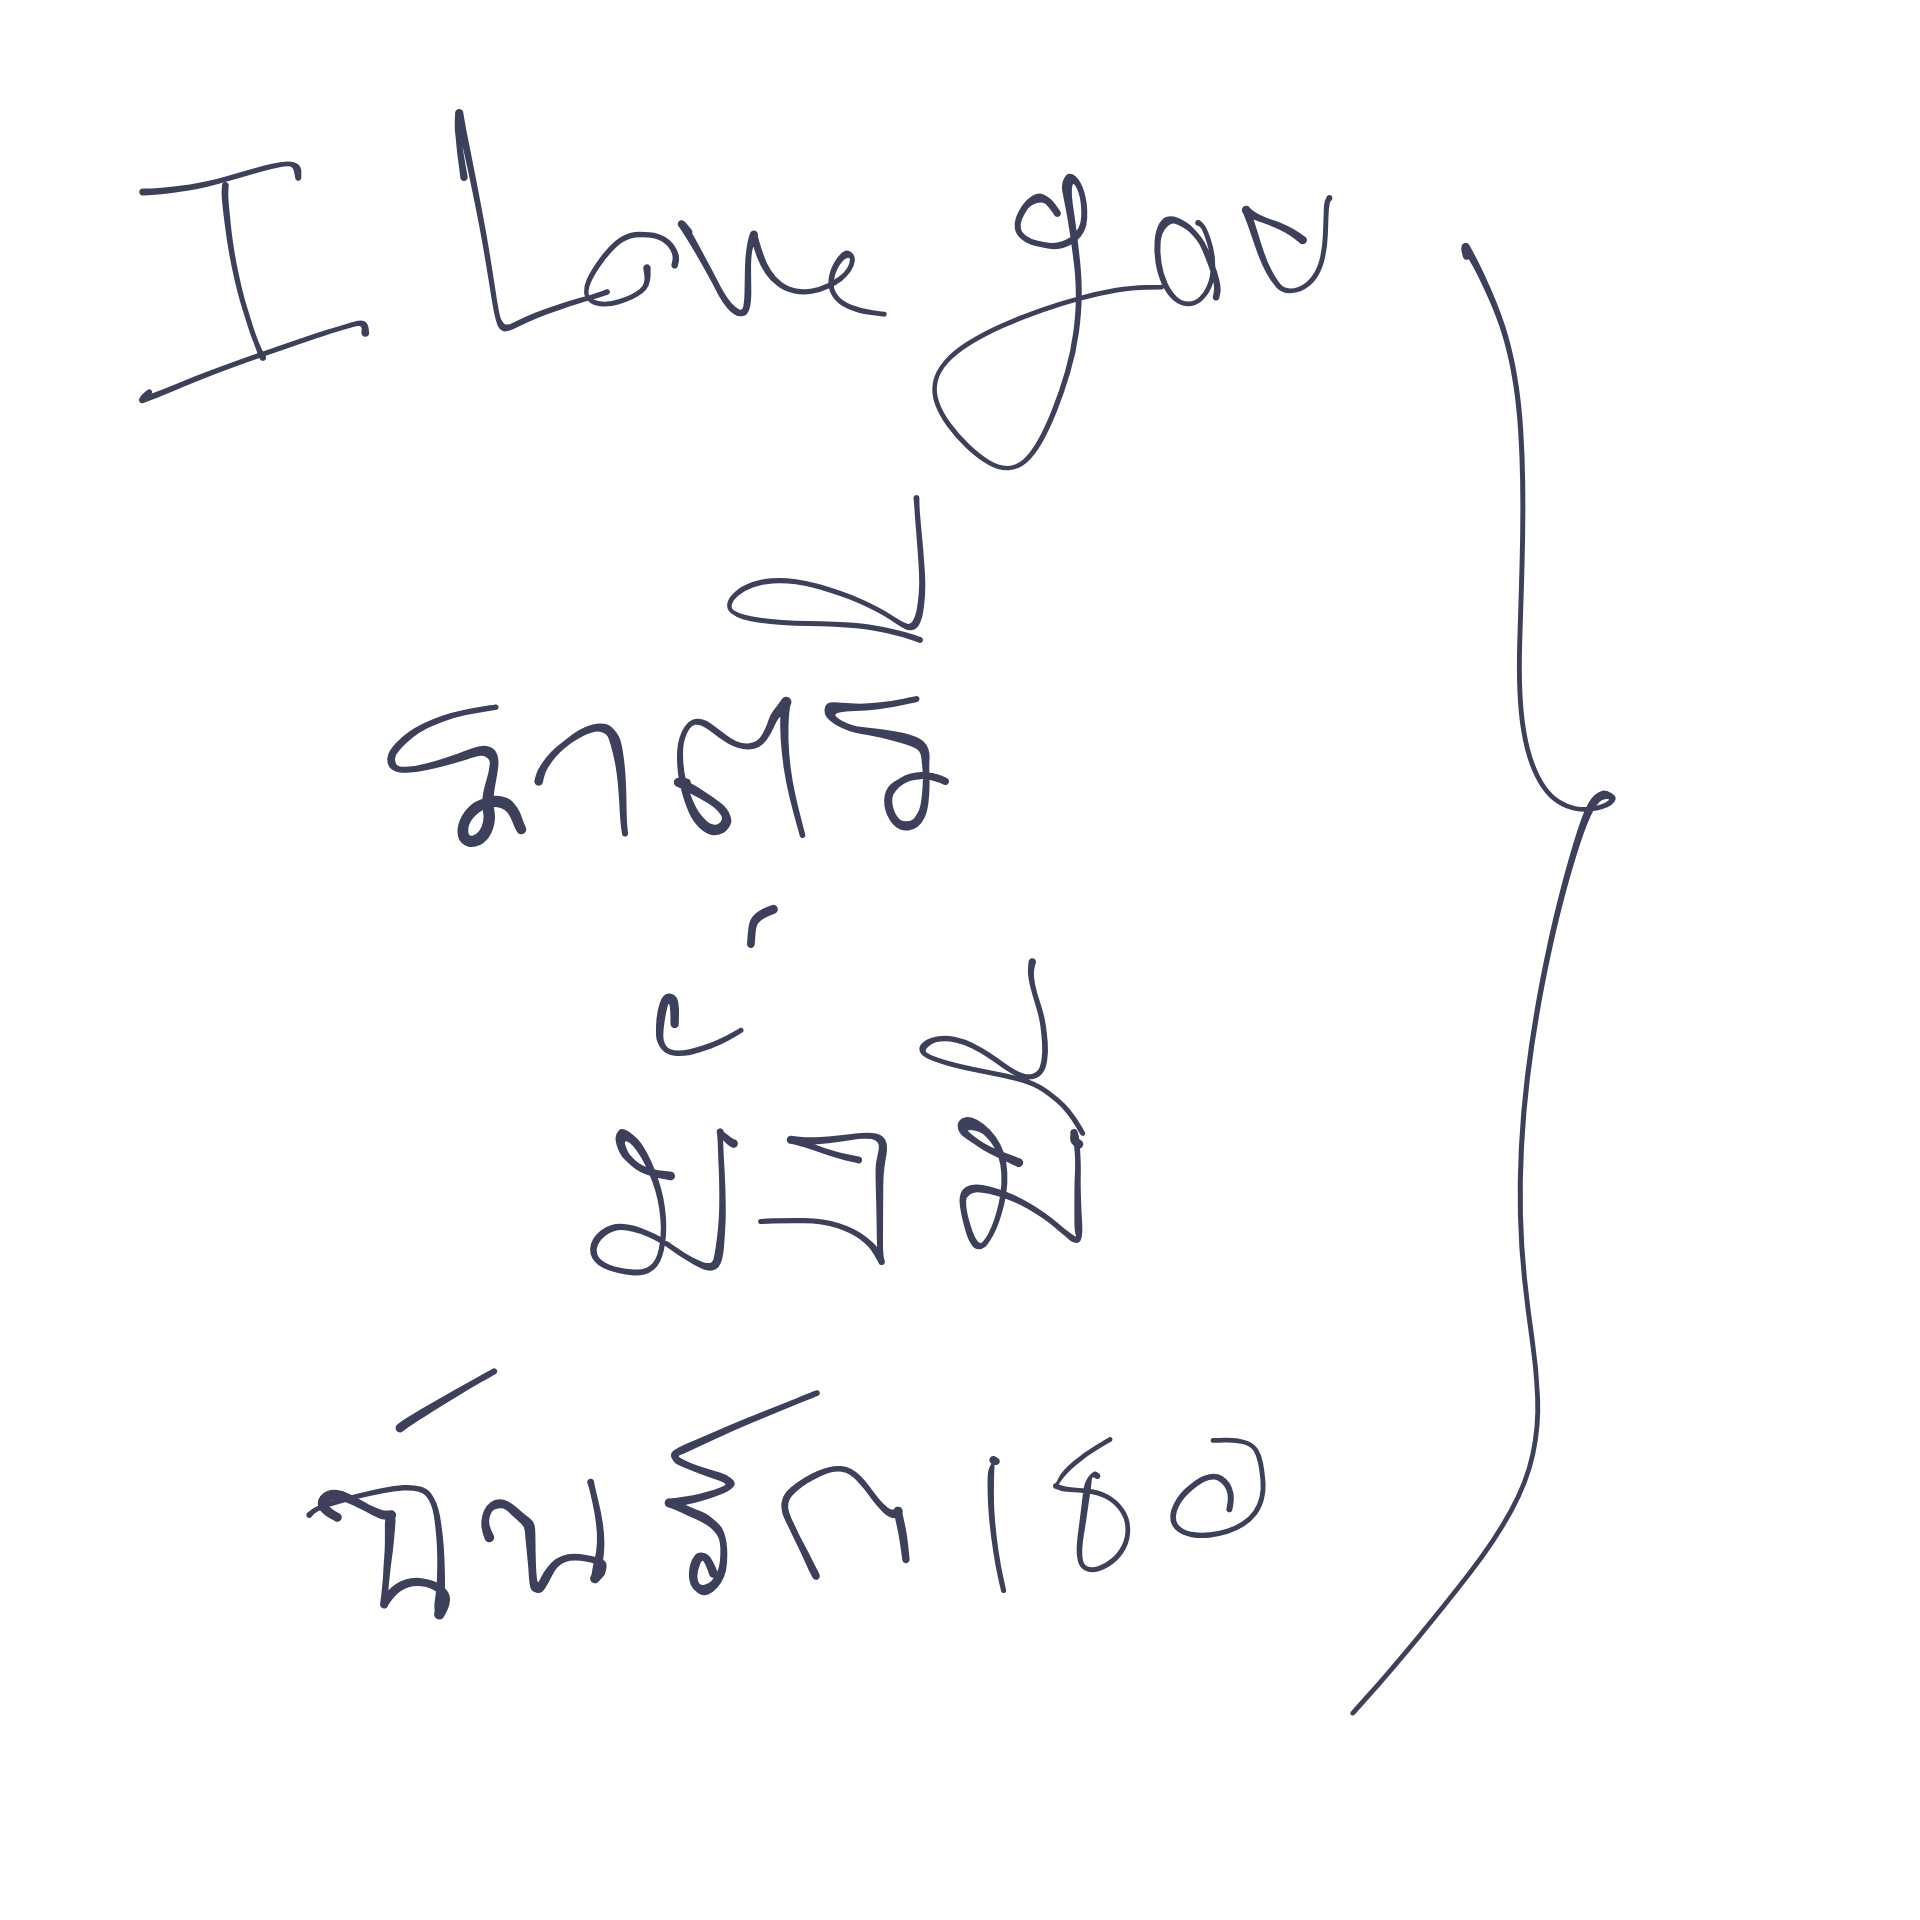 I love you
ราตรี
มั่งมี
ฉันรักเธอ